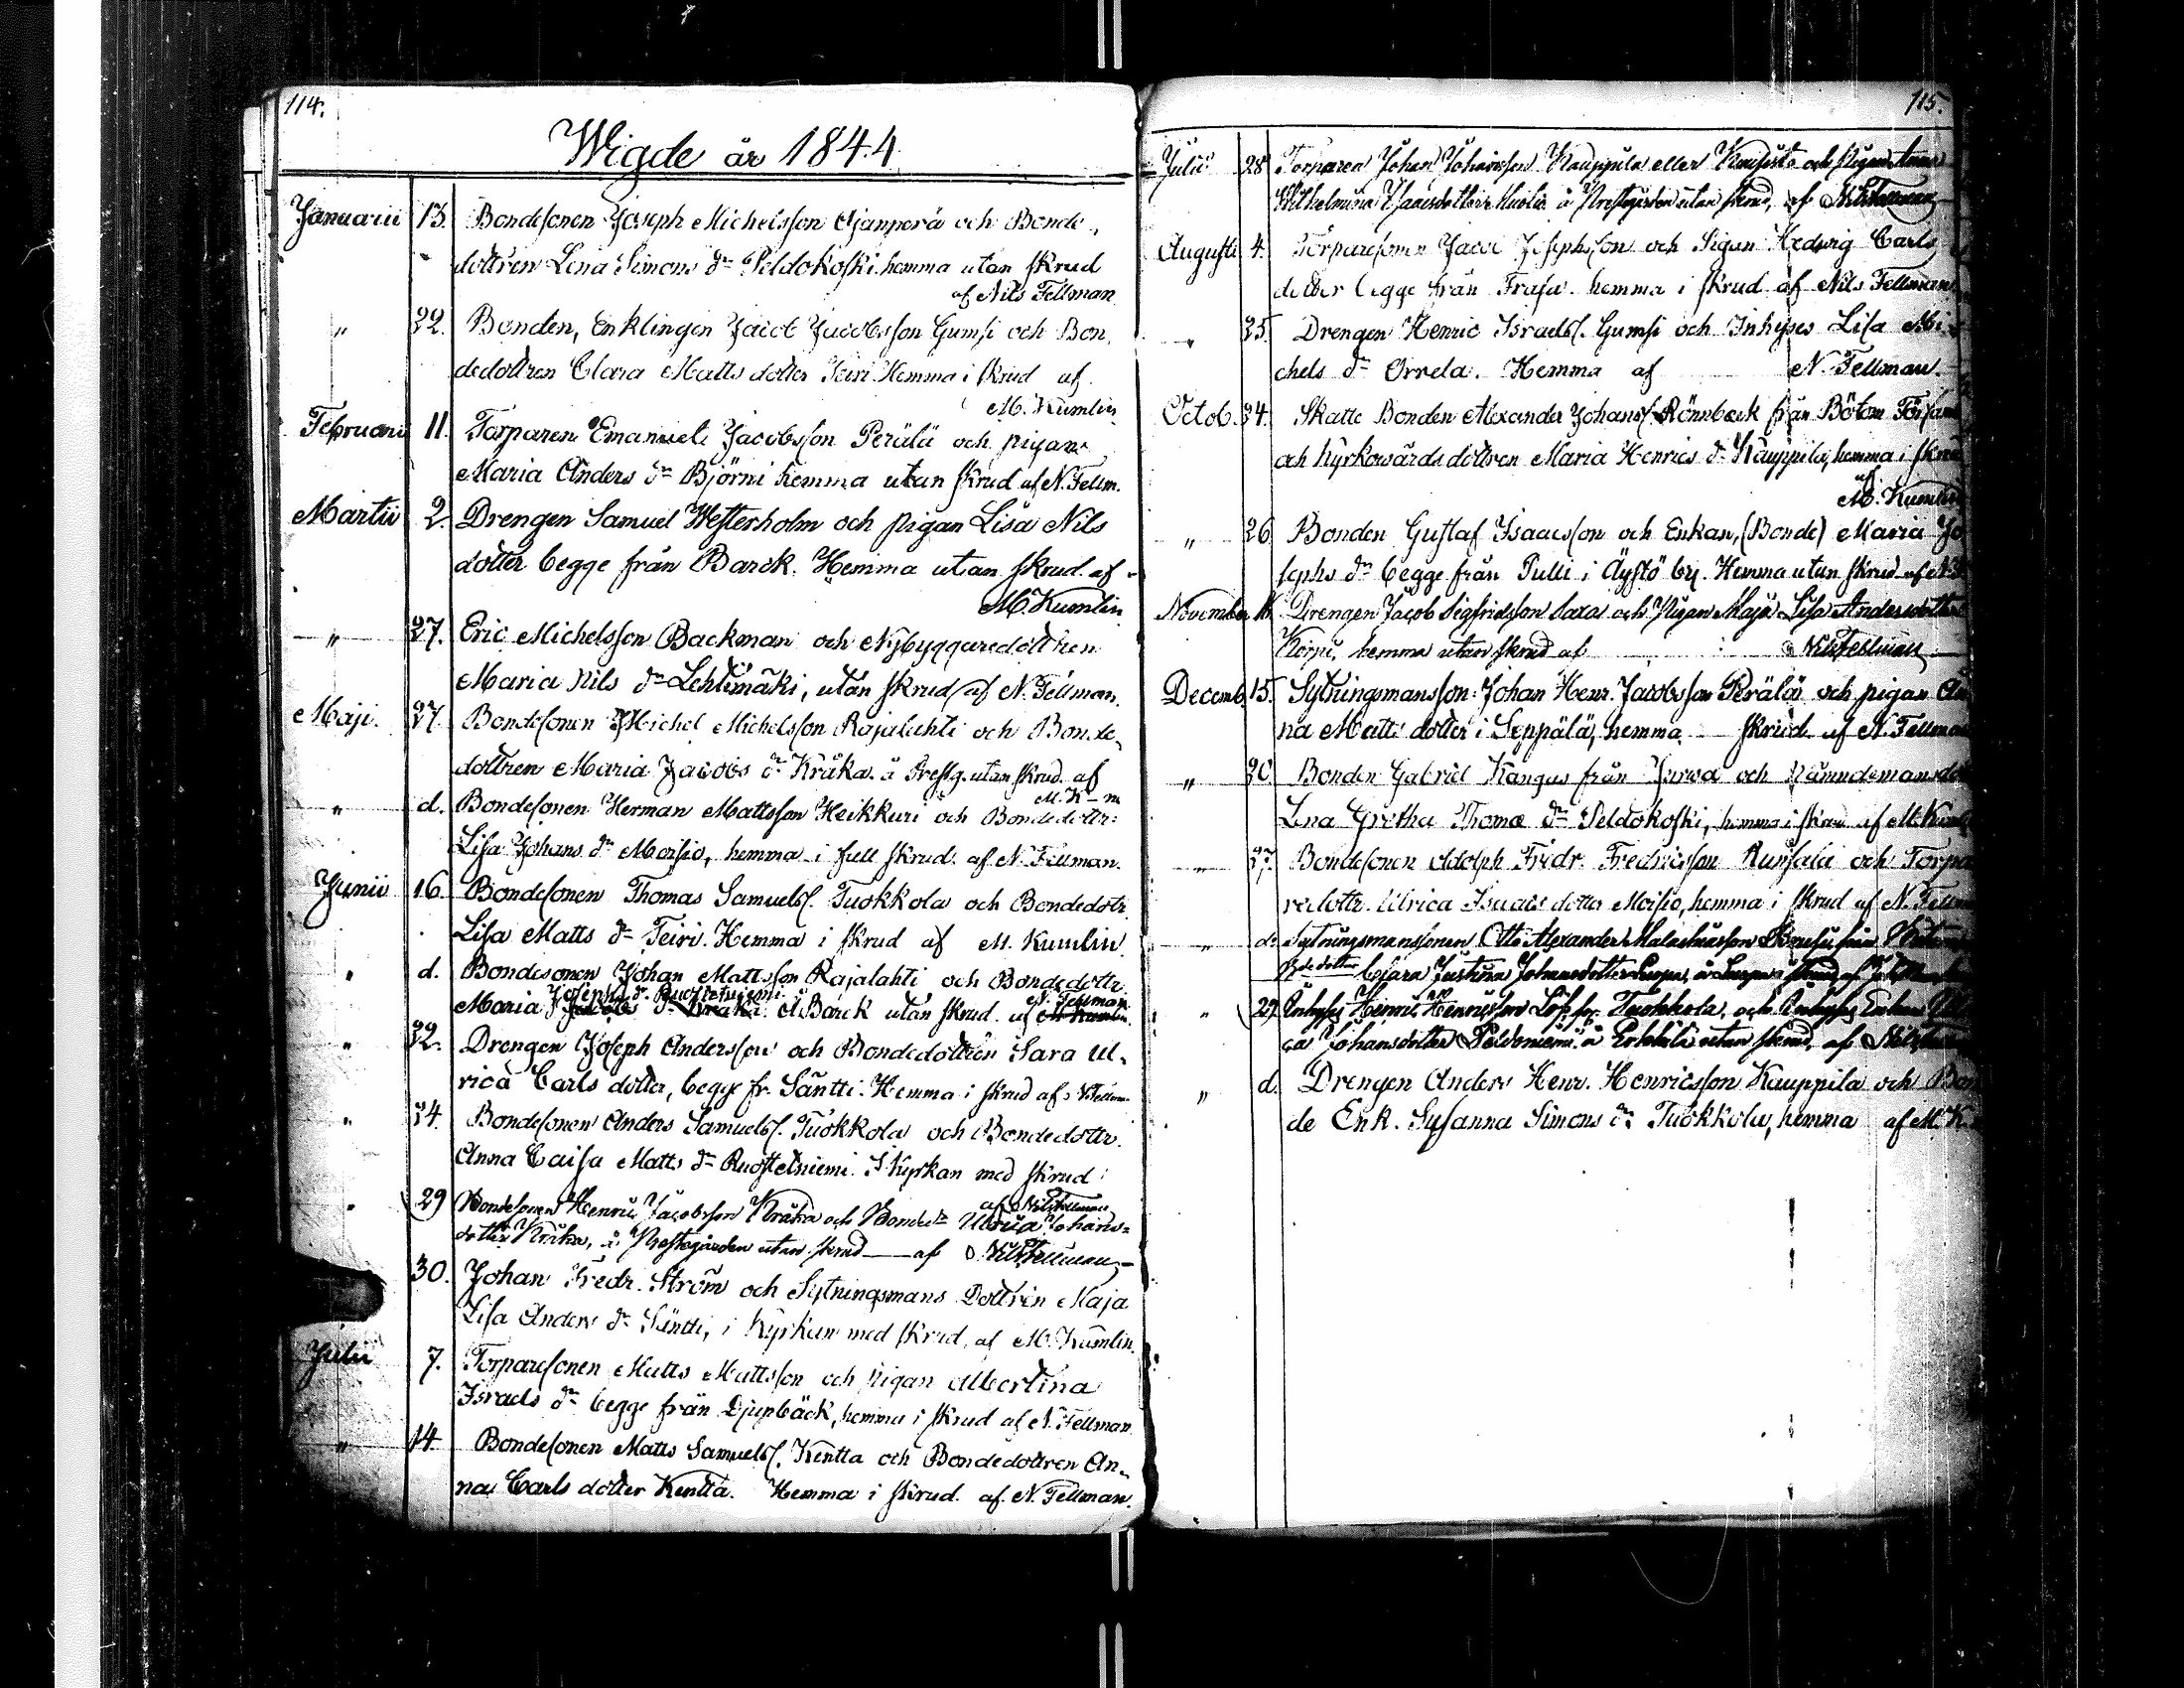 114.
Wigde år 1844
Januarii 13. Bondesonen Joseph Michelsson Ojanperä och Bonde-
dottren Lena Simons dr Peldokoski hemma utan skrud
af Nils Fellman
" 22. Bonden, Enklingen Jacob Jacobsson Gumsi och Bon
dedottren Clara Matts dotter Teiri Hemma i skrud af
M. Kumlin
Februari 11. Torparen Emanuel Jacobsson Perälä och pigan
Maria Anders dr Björni hemma utan skrud af N. Fellm.
Martii 2. Drengen Samuel Westerholm och pigan Lisa Nils
dotter begge från Barck. Hemma utan skrud af
M. Kumlin
" 27. Eric Michelsson Backman och Nybyggaredottren
Maria Nils dr Lehtimäki, utan skrud af N. Fellman.
Maji. 27. Bondesonen Michel Michelsson Rajalahti och Bonde
dottren Maria Jacobs dr Kråka å Prestg. utan skrud af
M. K-n
" d. Bondesonen Herman Mattsson Heikkuri och Bondedottr:
Lisa Johans dr Moisio, hemma i full skrud af N. Fellman.
Junii 16. Bondesonen Thomas Samuelss. Tuokkola och Bondedotr.
Lisa Matts dr Teiri. Hemma i skrud af M. Kumlin
" d. Bondesonen Johan Mattsson Rajalahti och Bondedottr
Josephs dr Ruostetniemi N. Fellman
Maria Jacobs dr Kråka. å Barck utan skrud af M Kumlin.
" 22. Drengen Joseph Andersson och Bondedottren Sara Ul-
rica Carls dotter, begge fr. Säntti. Hemma i skrud af N Fellm.
" 24. Bondesonen Anders Samuelss. Tuokkola och Bondedottr.
Anna Caisa Matts dr Ruostetniemi. I Kyrkan med skrud
af Nils Fellman
" 29 Bondesonen Henric Jacobsson Kråka och Bonded:r Ulrica Johans-
dotter Kråka, i Prestegården utan skrud — af Nils Fellman
30. Johan Fredr. Ström och Sytningsmans Dottren Maja
Lisa Anders dr Säntti, i Kyrkan med skrud, af M. Kumlin.
Julii 7. Torparesonen Matts Mattsson och pigan Albertina
Israels dr begge från Djupbäck, hemma i skrud af N. Fellman
" 14. Bondesonen Matts Samuelss. Kentta och Bondedottren An-
na Carls dotter Kentta. Hemma i skrud af N. Fellman.
115.
Julii 28 Torparen Johan Johansson Kauppila eller och Pigan Anna
Wilhelmina Isaacsdotter å Prestgården utan skrud, af Nils Fellman
Augusti 4. Torparesonen Jacob Josephsson och Pigan Hedvig Carls
dotter begge från Träsk. hemma i skrud af Nils Fellman
" 25. Drengen Henric Israelss. Gumsi och Inhyses Lisa Mi-
chels dr Orrela. Hemma af N. Fellman.
Octob. 24. Skatte Bonden Alexander Johanss. Rönnback från Bötom
och Kyrkovärds dottren Maria Henrics dr Kauppila, hemma i skrud
af
M. Kumlin
" 26 Bonden Gustaf Isaacsson och Enkan, (Bonde) Maria Jo
sephs dr begge från Pulli i Äystö by. Hemma utan skrud af N.
November Drengen Jacob Sigfridsson Saxa och Pigan Maja Lisa Andersdotter
Korpi, hemma utan skrud af Nils Fellman
Decemb. 15. Sytningsmansson Johan Henr. Jacobsson Perälä och pigan An
na Matts dotter i Seppälä, hemma — skrud af N. Fellman
" 20. Bonden Gabriel Kangas från Jurva och Nämndemansdo
Lena Gretha Thomæ dr Peldokoski, hemma i skrud af M. Kuml
" 27. Bondesonen Adolph Fredr. Fredricsson och Torpa
redottr. Ulrica Isaacs dotter Moisio, hemma i skrud af N. Fellm
" d. Sytningsmanssonen Otto Alexander från
Bdedotter Clara Justina Johansdotter
" 29 Inhyses Henric Henricsson Löf fr. Tuokkola, och Inhyses Enkan Ul
ca Johansdotter Peldoniemi å Erkkilä utan skrud, af Nils
" d. Drengen Anders Henr. Henricsson Kauppila och Bon
de Enk. Susanna Simons dr Tuokkola, hemma af M. K.